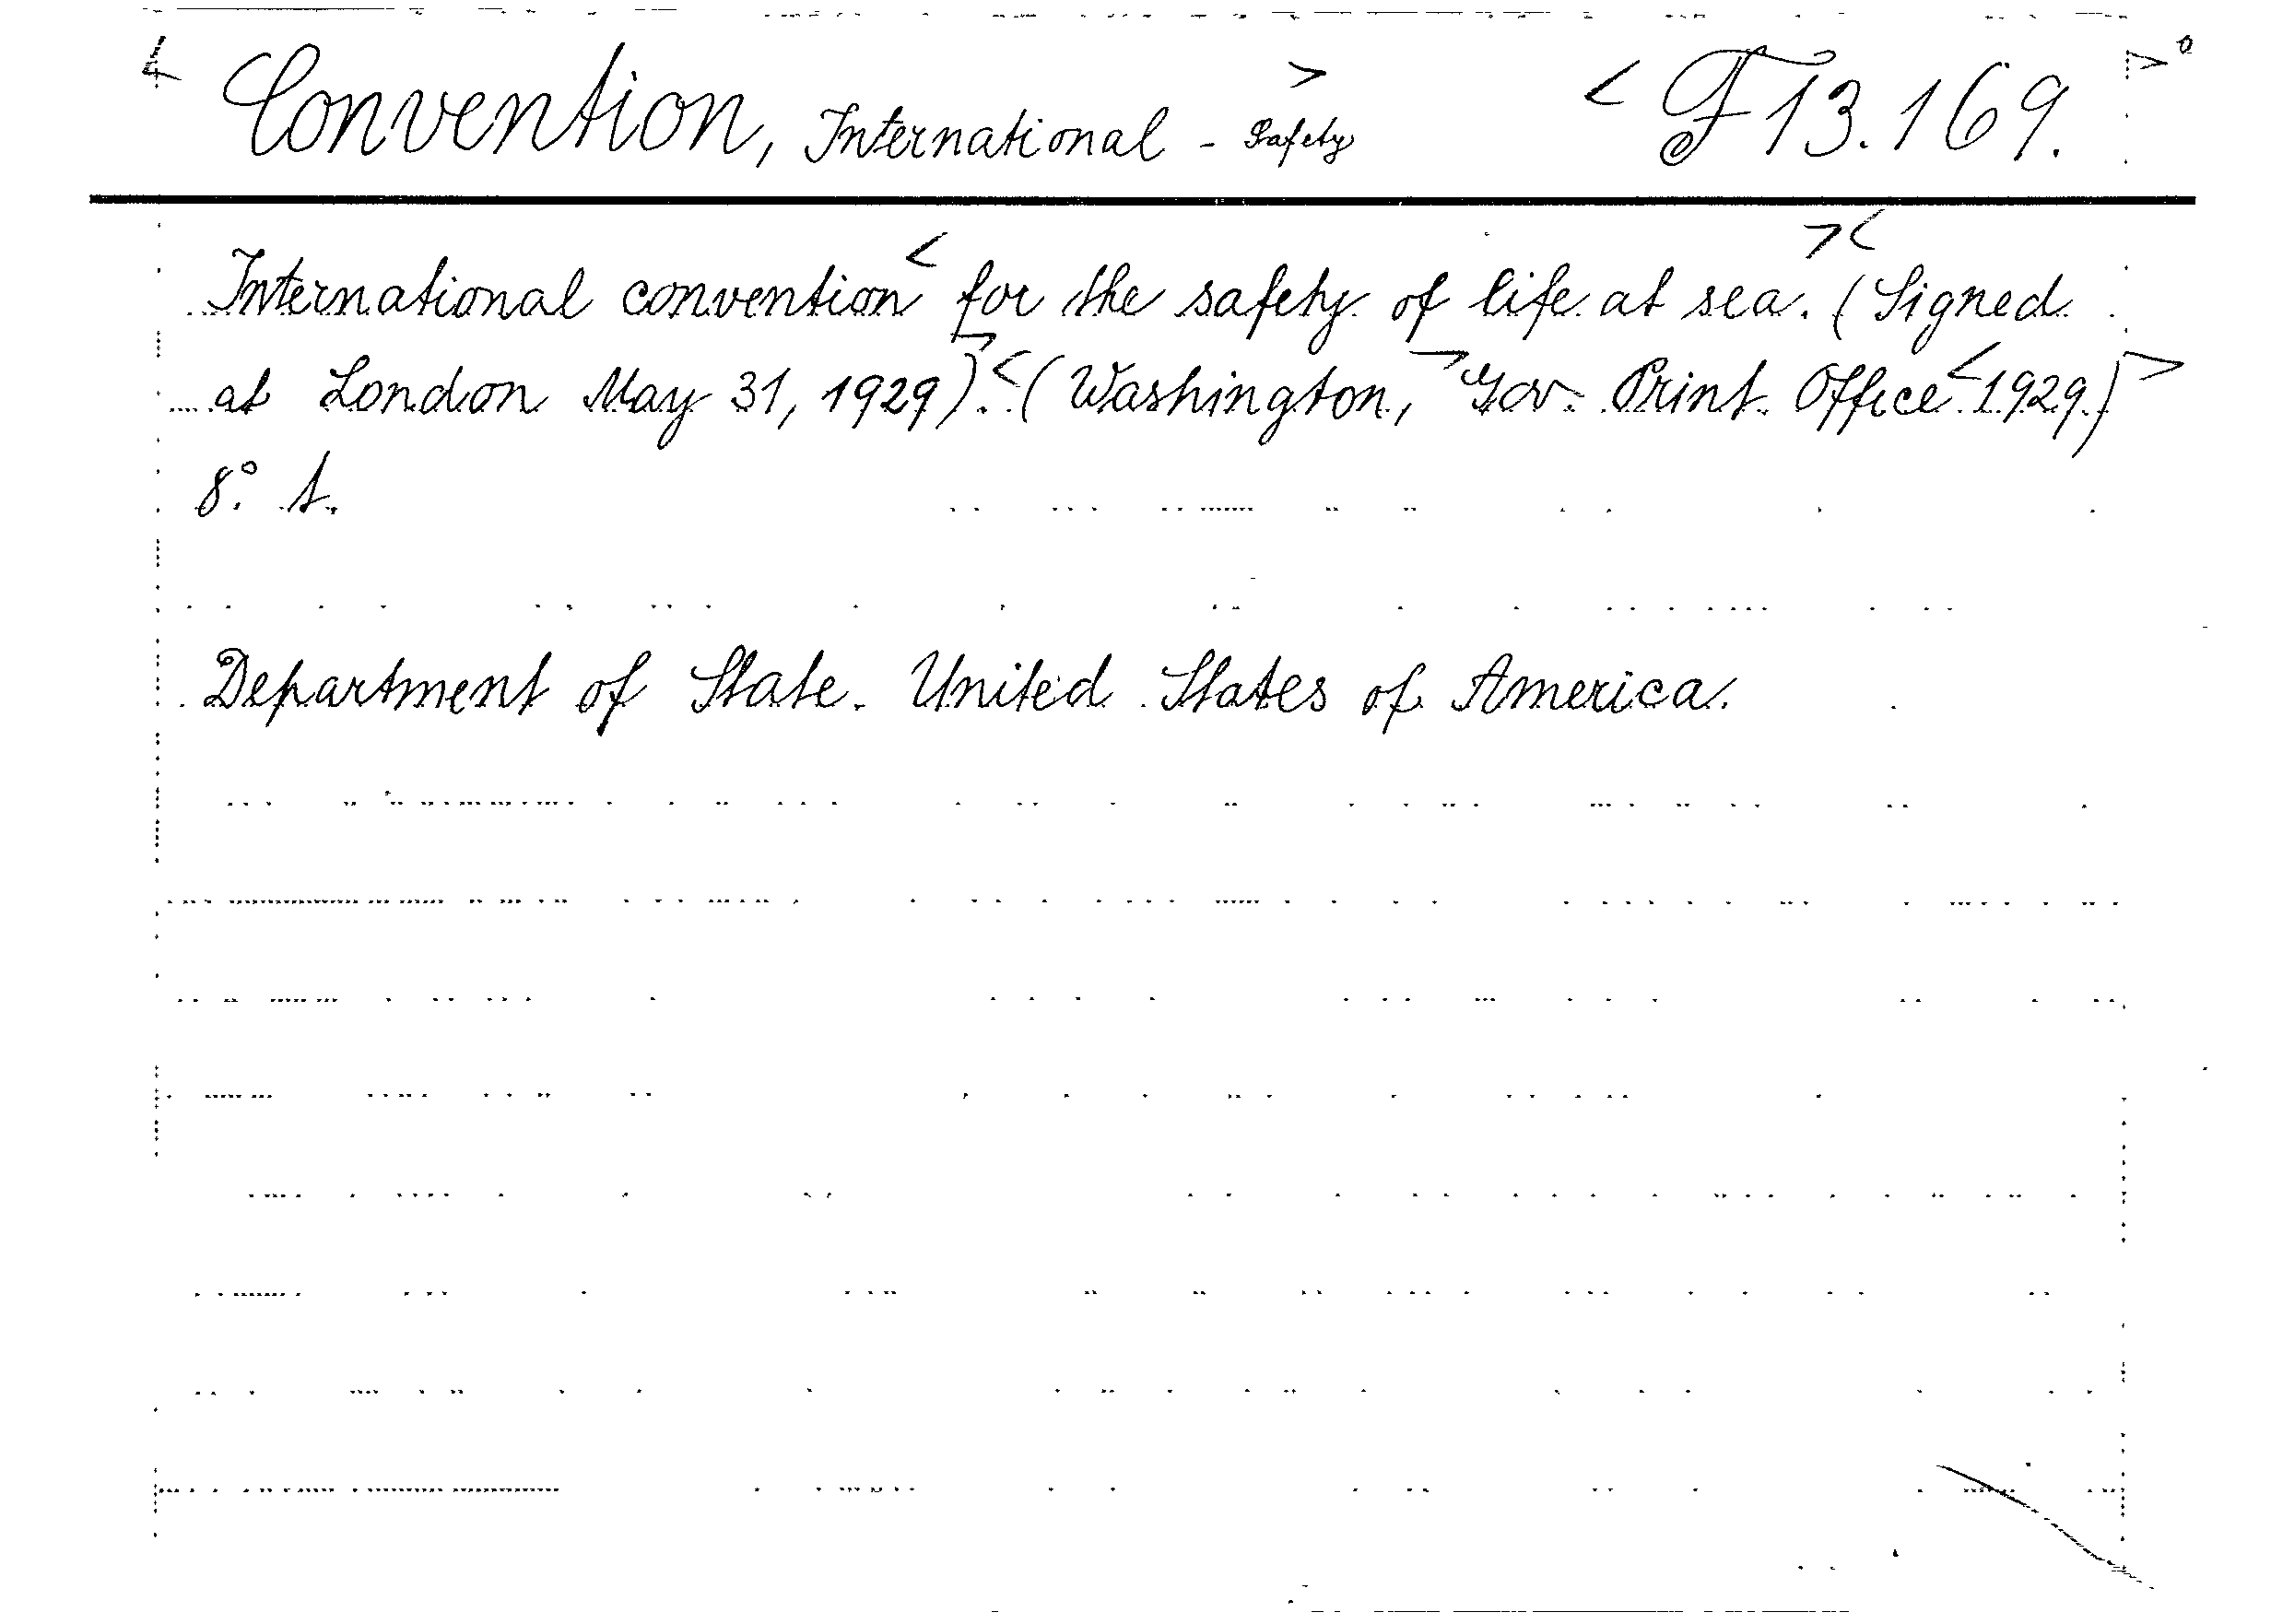 Convention, International - Safety F 13.169.
International convention for the safety of life at sea. (Signed
at London May 31, 1929). (Washington, Gov. Print. Office 1929.)
8°. t.
Department of State. United States of America.